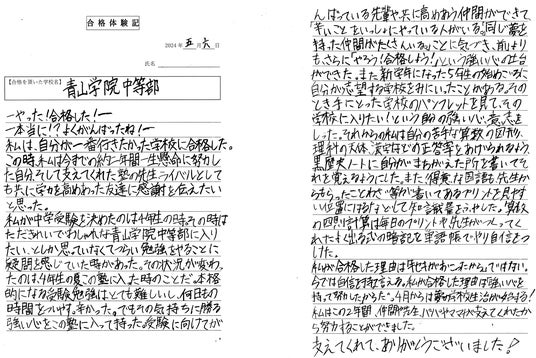 合格体験記
2024年 五月 六日
氏名
【合格を頂いた学校名】
青山学院中等部
―やった！合格した！―
―本当に！？よくがんばったね！―
私は、自分が一番行きたかった学校に合格した。
この時、私は今までの約一年間一生懸命に努力し
た自分、そして支えてくれた塾の先生、ライバルとして
も共に学力を高めあった友達に感謝を伝えたい
と思った。
私が中学受験を決めたのは4年生の時。その時は
ただきれいでおしゃれな青山学院中等部に入り
たい、としか思っていなくてつらい勉強をやることに
疑問を感じていた時があった。その状況が変わっ
たのは5年生の夏、この塾に入った時のことだ。本格
的になる受験勉強はとても難しいし、何日もの
時間をついやす。辛かった。でもその気持ちに勝る
強い心をこの塾に入って持った。受験に向けてが
んばっている先輩や共に高めあう仲間ができて
「辛いことをいっしょにやっている人がいる。」「同じ夢を
持った仲間がたくさんいる。」ことに気づき、前より
も、さらに「やろう！合格しよう！」という強い心の土台
ができた。また新学年になった5年生の始めごろに
自分が志望する学校を見にいったことがある。その
とき手にとった学校のパンフレットを見て、その
学校に入りたい！という自分の強い心、意志を
した。それからの私は自分の苦手な算数の図形、
理科の天体、漢字などの正答率をあげられるよう、
黒歴史ノートに自分がまちがえた所を書いてそ
れを覚えるようにした。また得意な国語も先生か
らもらったことわざ等が書いてあるプリントを見やす
い位置にはるなどして知識量をふやした。算数
の四則計算は毎日のプリントや先生がつくってく
れたよく出る式の暗記を単語帳でやり自信をつ
けた。
私が合格した理由は年七月があったからではない。
今では自信を持って言える。私が合格した理由は強い心を
持って努力したからだ。4月からは夢の学校生活が始まる！
私はこの2年間、仲間や先生、パパやママが支えてくれたか
ら努力することができました。
支えてくれて、ありがとうございました！